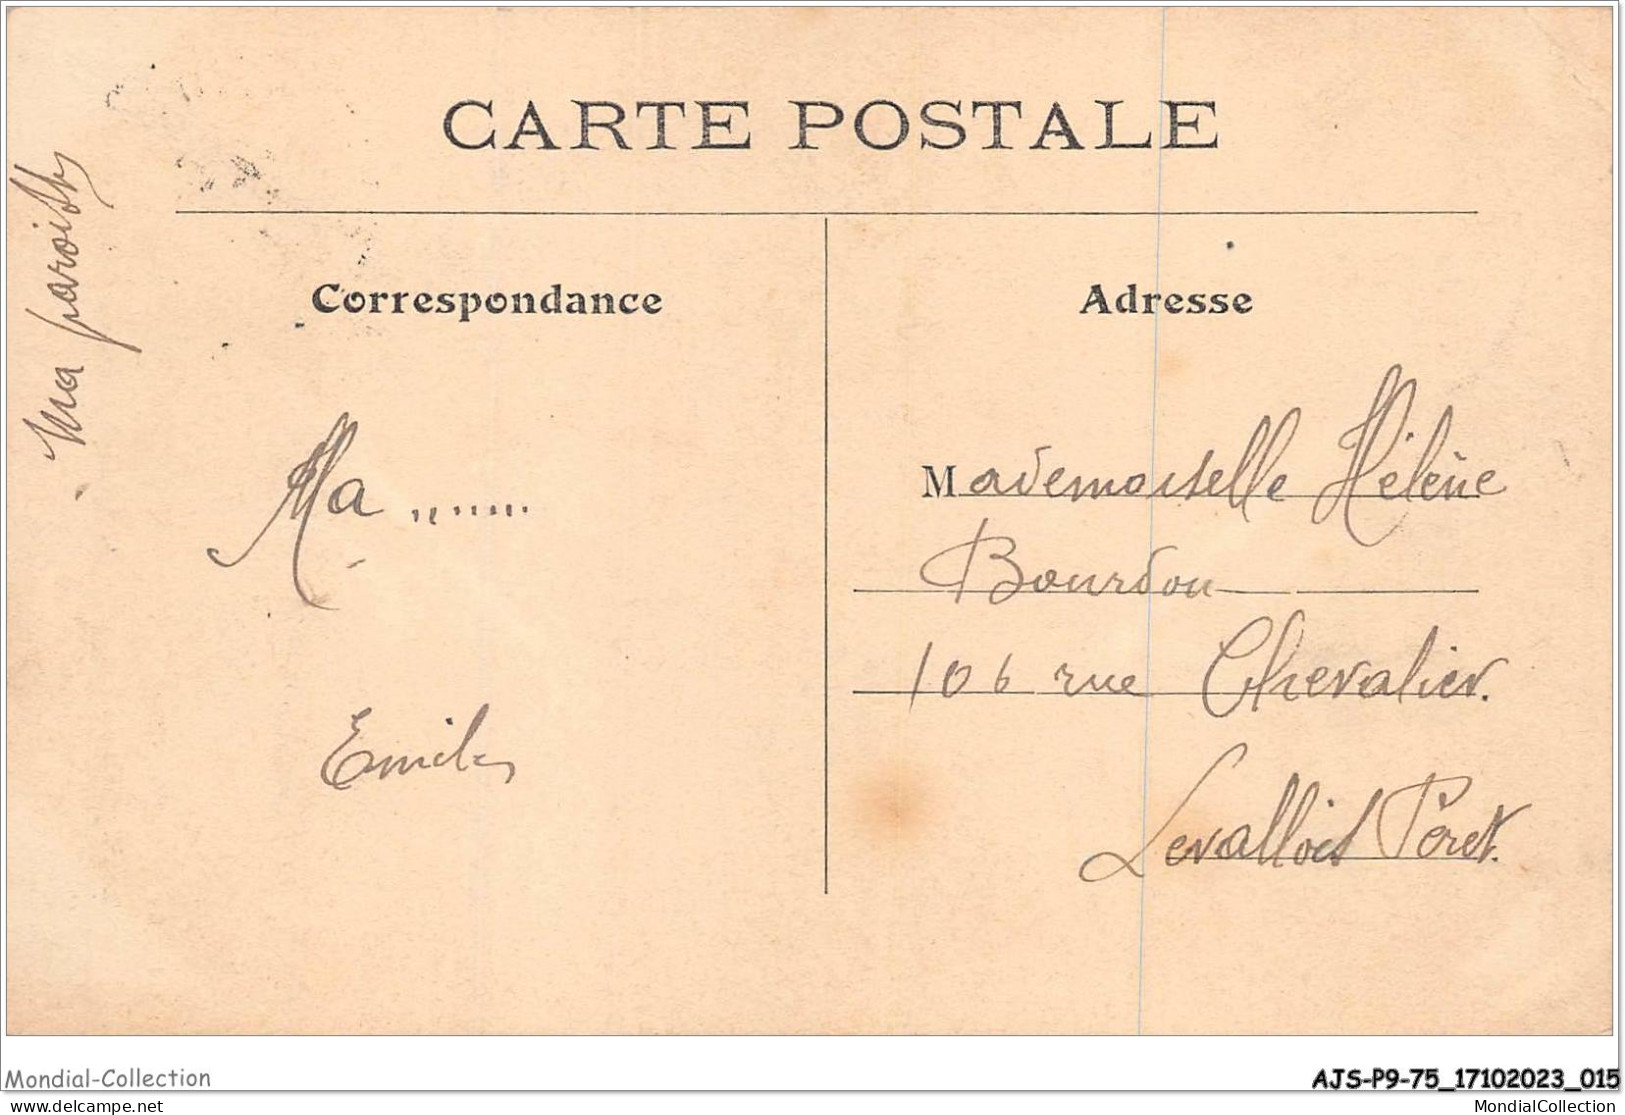 CARTE POSTALE
Ma
Correspondance
Adresse
Ma .......
Mademoiselle Hélène
Bourdon
106 rue Chevalier.
Levallois Péret.
Mondial-Collection
AJS-P9-75_17102023_015
www.delcampe.net
MondialCollection